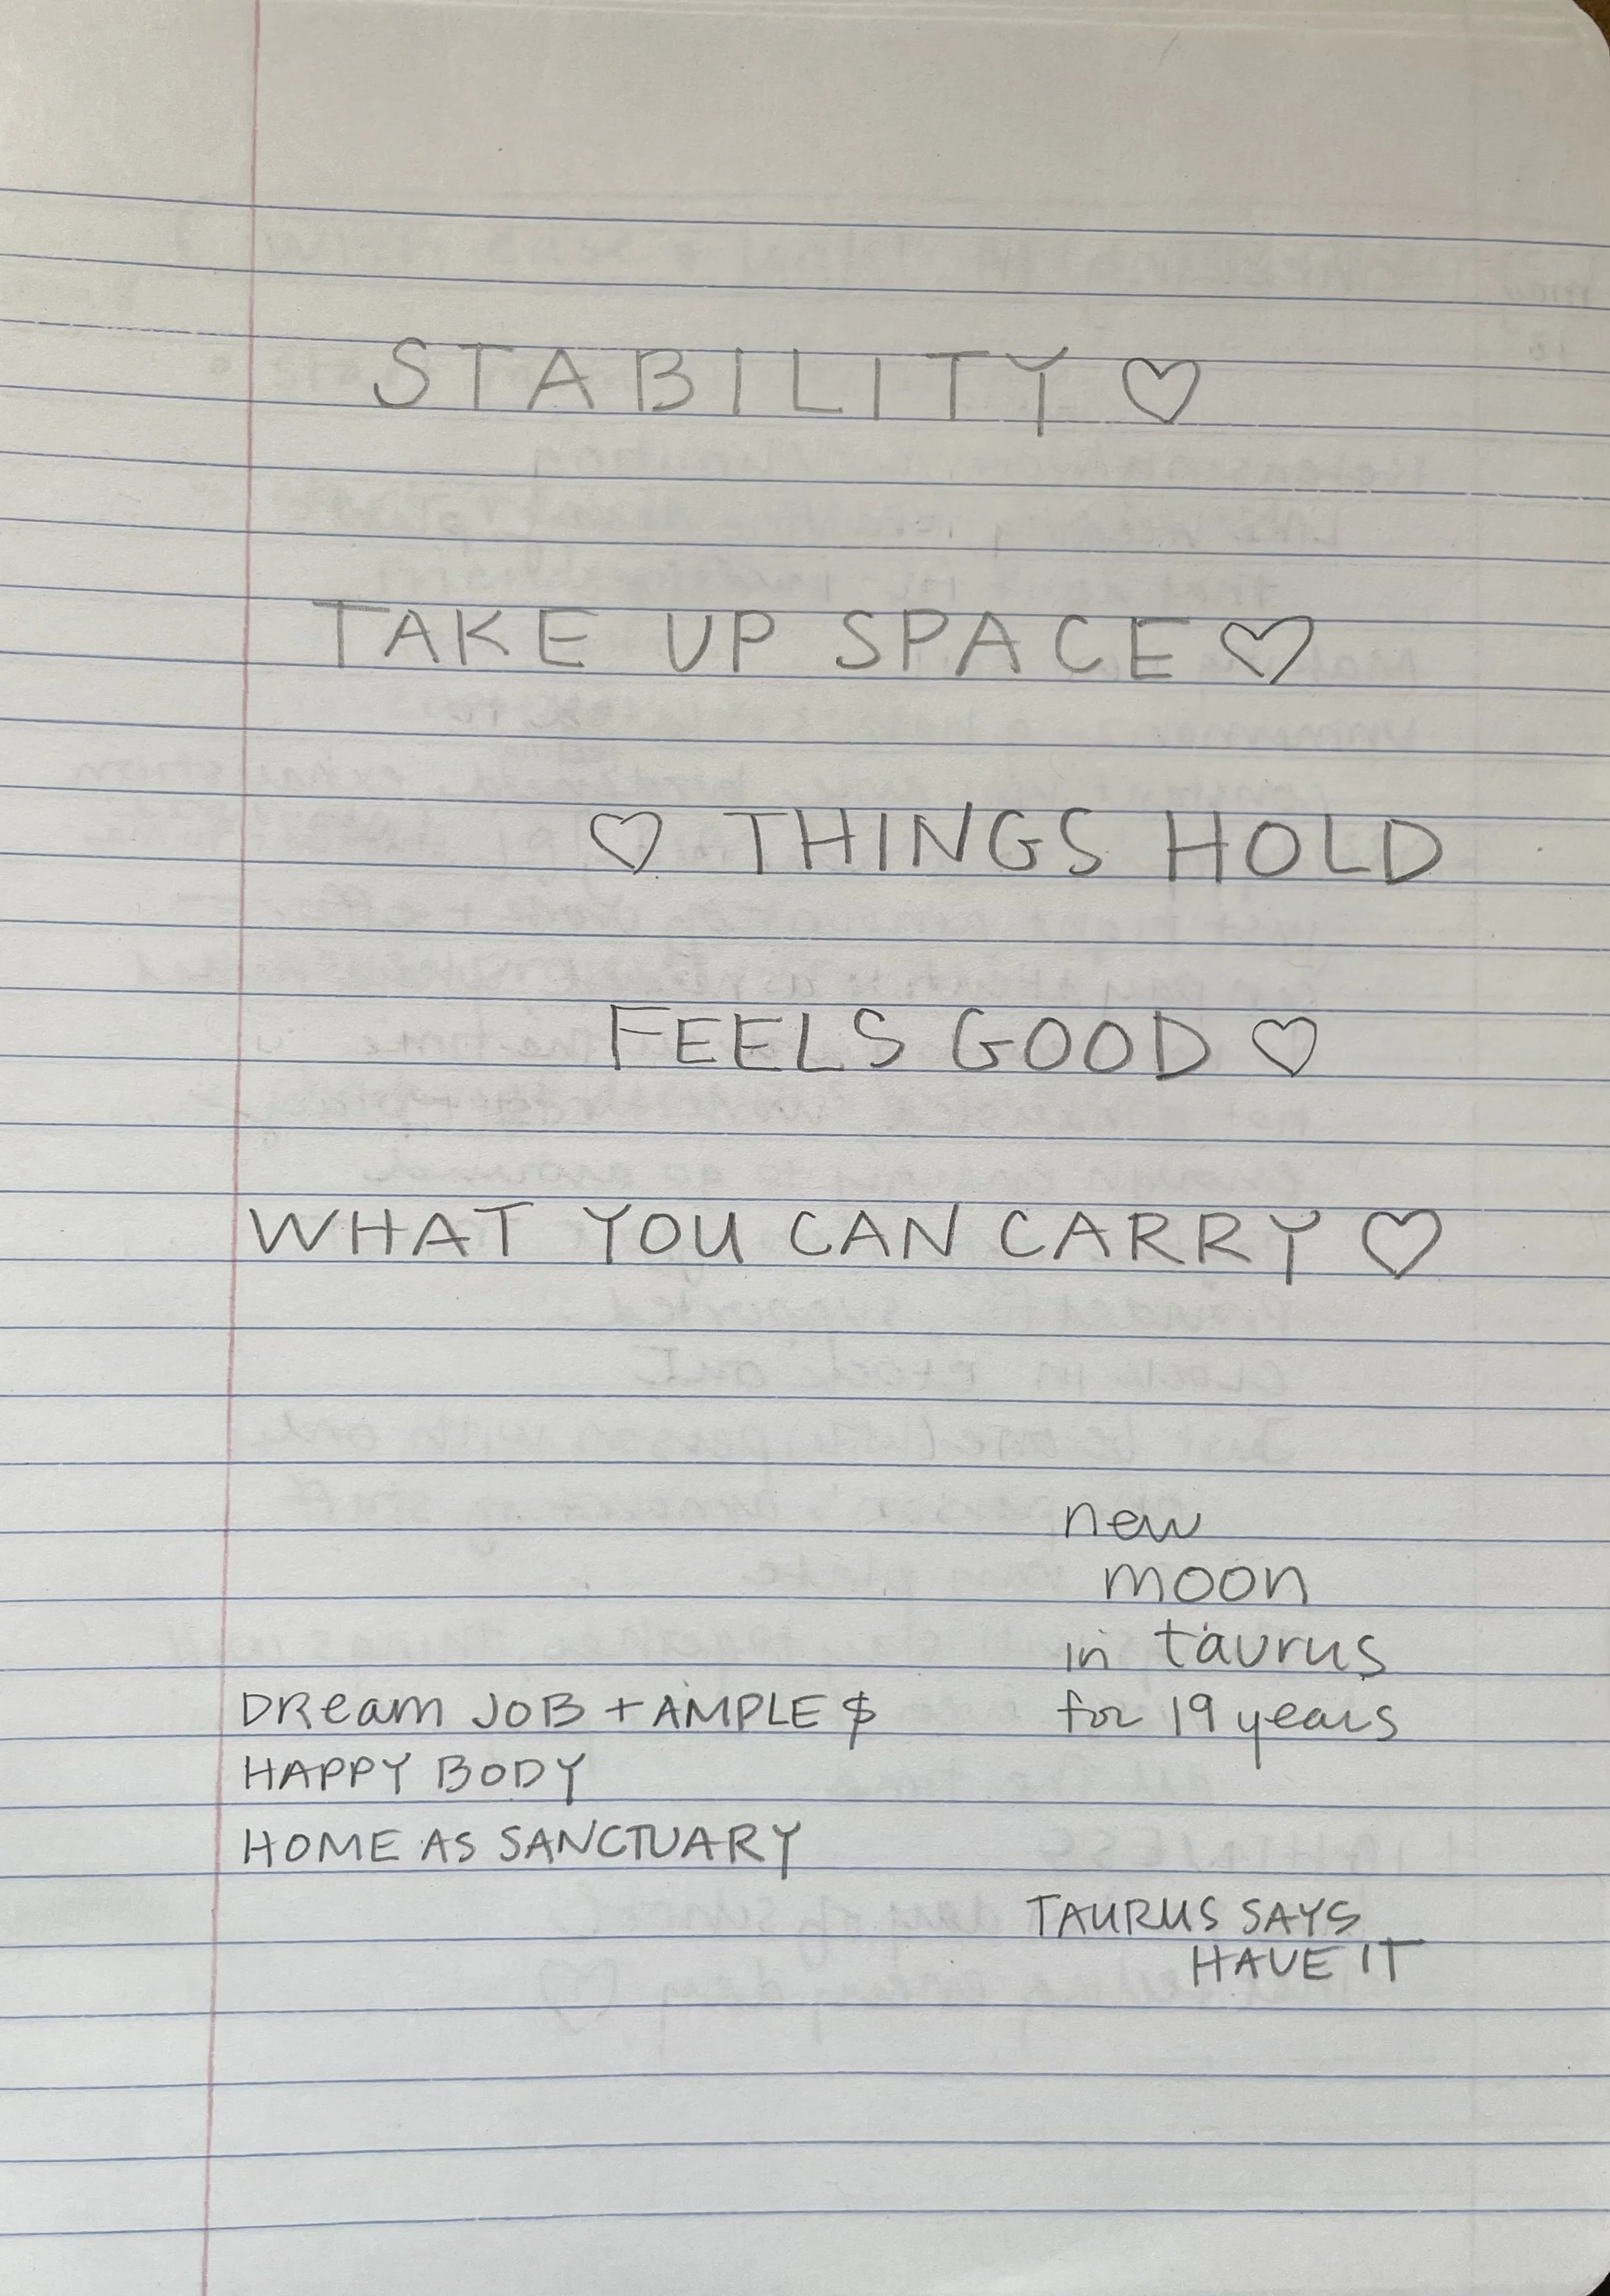 STABILITY ♡
TAKE UP SPACE ♡
♡ THINGS HOLD
FEELS GOOD ♡
WHAT YOU CAN CARRY ♡
new
moon
in taurus
for 19 years
DReam JOB + AMPLE $
HAPPY BODY
HOME AS SANCTUARY
TAURUS SAYS
HAVE IT